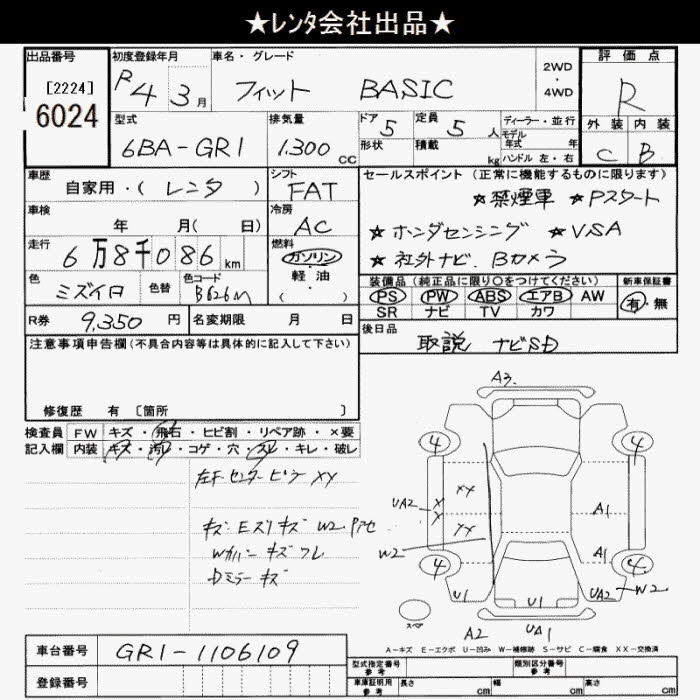 ★レンタ会社出品★
出品番号
[2224]
6024
初度登録年月
R4 3月
車名・グレード
フィット BASIC
2WD
・
4WD
評価点
R
外装 内装
C B
型式
6BA-GR1
排気量
1.300 CC
ドア 5
形状
定員 5 人
積載 kg
ディーラー・並行
モデル
年式 年
ハンドル 左・右
車歴
自家用・(レンタ)
シフト
FAT
車検
年 月( 日)
冷房
AC
走行
6万8千086km
燃料
ガソリン
軽・油
( ・ )
色
ミズイロ
色替
色コード
B626M
R券 9,350 円
名変期限 月 日
セールスポイント(正常に機能するものに限ります)
★禁煙車 ★Pスタート
★ホンダセンシング ★VSA
★社外ナビ、Bカメラ
装備品(純正品に限り○をつけてください)
PS PW ABS エアB AW
SR ナビ TV カワ
新車保証書
有・無
後日品
取説 ナビSD
注意事項申告欄(不具合内容等は具体的に記入して下さい)
修復歴 有 〔箇所 〕
検査員
記入欄
FW キズ・飛石・ヒビ割・リペア跡・×要
内装 キズ・汚レ・コゲ・穴・スレ・キレ・破レ
左下センターピラー XY
キズ Eスリキズ W2 P
Wカバー キズ ワレ
Dミラー キズ
A3
4 4
UA2 X
X
XY
XY
A1
W2
A1
4 4
U1 U1 UA2 W2
スペア
A2 UA1
A-キズ E-エクボ U-凹み W-補修跡 S-サビ C-腐食 XX-交換済
車台番号 GR1-1106109
登録番号
型式指定番号
参考
類別区分番号
参考
車庫証明用
参考
長さ cm 幅 cm 高さ cm